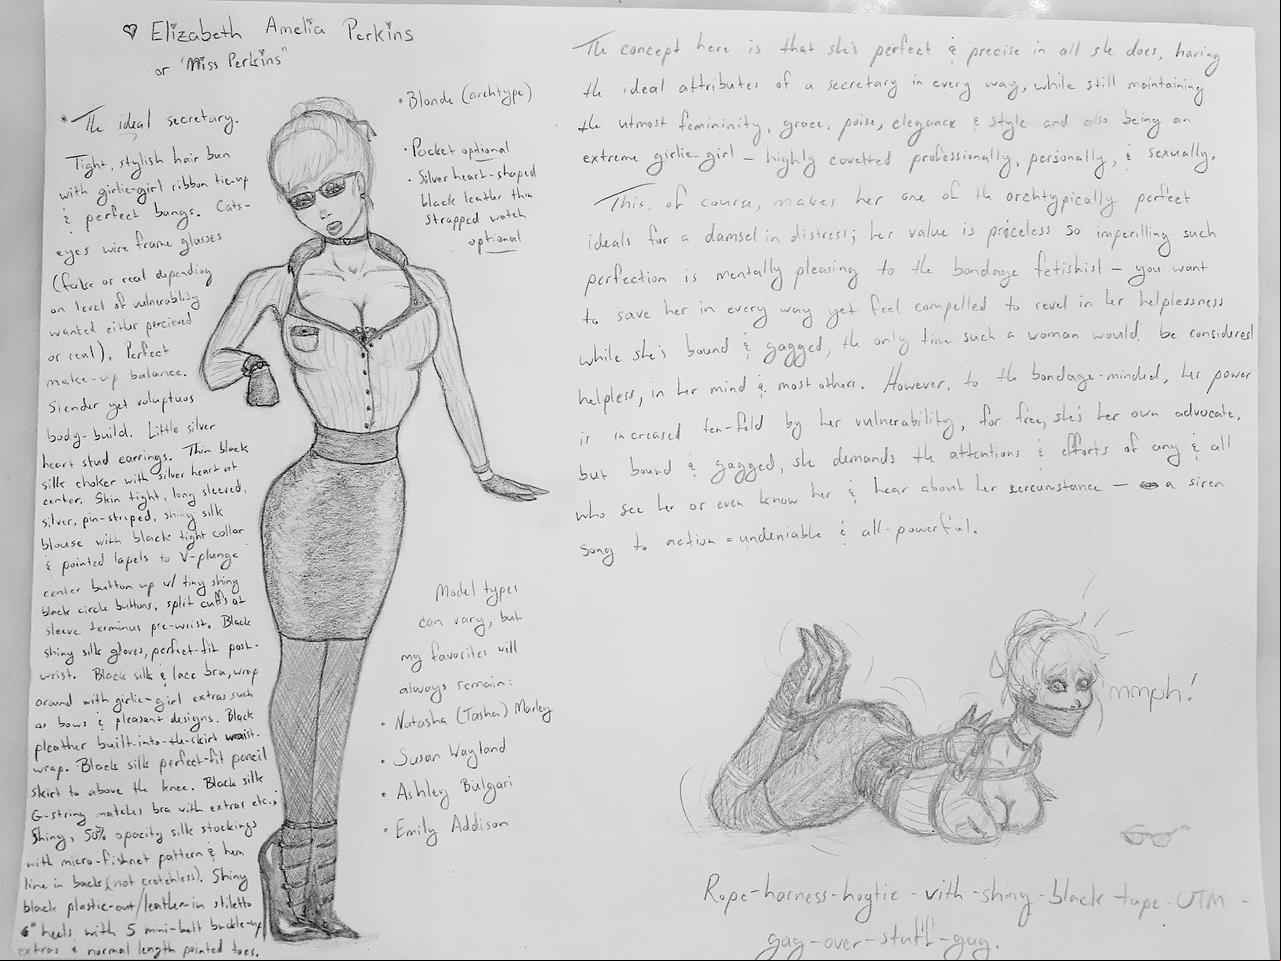 ♡ Elizabeth Amelia Perkins
or "Miss Perkins"
* The ideal secretary.
Tight, stylish hair bun
with girlie-girl ribbon tie-up
& perfect bangs. Cats-
eyes wire frame glasses
(false or real depending
on level of vulnerability
wanted either percieved
or real), Perfect
make-up balance.
Slender yet voluptuos
body-build. Little silver
heart stud earrings. Thin black
silk choker with silver heart at
center. Skin tight, long sleeved,
silver, pin-striped, shiny silk
blouse with black tight collar
& pointed lapels to V-plunge
center button up w/ tiny shiny
black circle buttons, split cuffs at
sleeve terminus pre-wrist. Black
shiny silk gloves, perfect-fit post-
wrist. Black silk & lace bra, wrap
around with girlie-girl extras such
as bows & pleasant designs. Black
pleather built-into-the-skirt waist-
wrap. Black silk perfect-fit pencil
skirt to above the knee. Black silk
G-string matches bra with extras etc.,
Shiny, 50% opacity silk stockings
with micro-fishnet pattern & hem
line in back (not crotchless). Shiny
black plastic-out/leather-in stiletto
6" heels with 5 mini-belt buckle-up
extras & normal length pointed toes.
• Blonde (archtype)
• Pocket optional
• Silver heart-shaped
black leather thin
strapped watch
optional
Model types
can vary, but
my favorites will
always remain:
• Natasha (Tasha) Marley
• Susan Wayland
• Ashley Bulgari
• Emily Addison
The concept here is that she's perfect & precise in all she does, having
the ideal attributes of a secretary in every way, while still maintaining
the utmost femininity, grace, poise, elegance & style and also being an
extreme girlie-girl – highly covetted professionally, personally, & sexually.
This, of course, makes her one of th archtypically perfect
ideals for a damsel in distress; her value is priceless so imperilling such
perfection is mentally pleasing to the bondage fetishist – you want
to save her in every way yet feel compelled to revel in her helplessness
while she's bound & gagged, the only time such a woman would be considered
helpless, in her mind & most others. However, to the bondage-minded, her power
is increased ten-fold by her vulnerability, for free, she's her own advocate,
but bound & gagged, she demands the attentions & efforts of any & all
who see her or even know her & hear about her sercumstance – a siren
song to action = undeniable & all-powerful.
mmph!
Rope-harness-hogtie-with-shiny-black tape-OTM-
gag-over-stuff-gag.